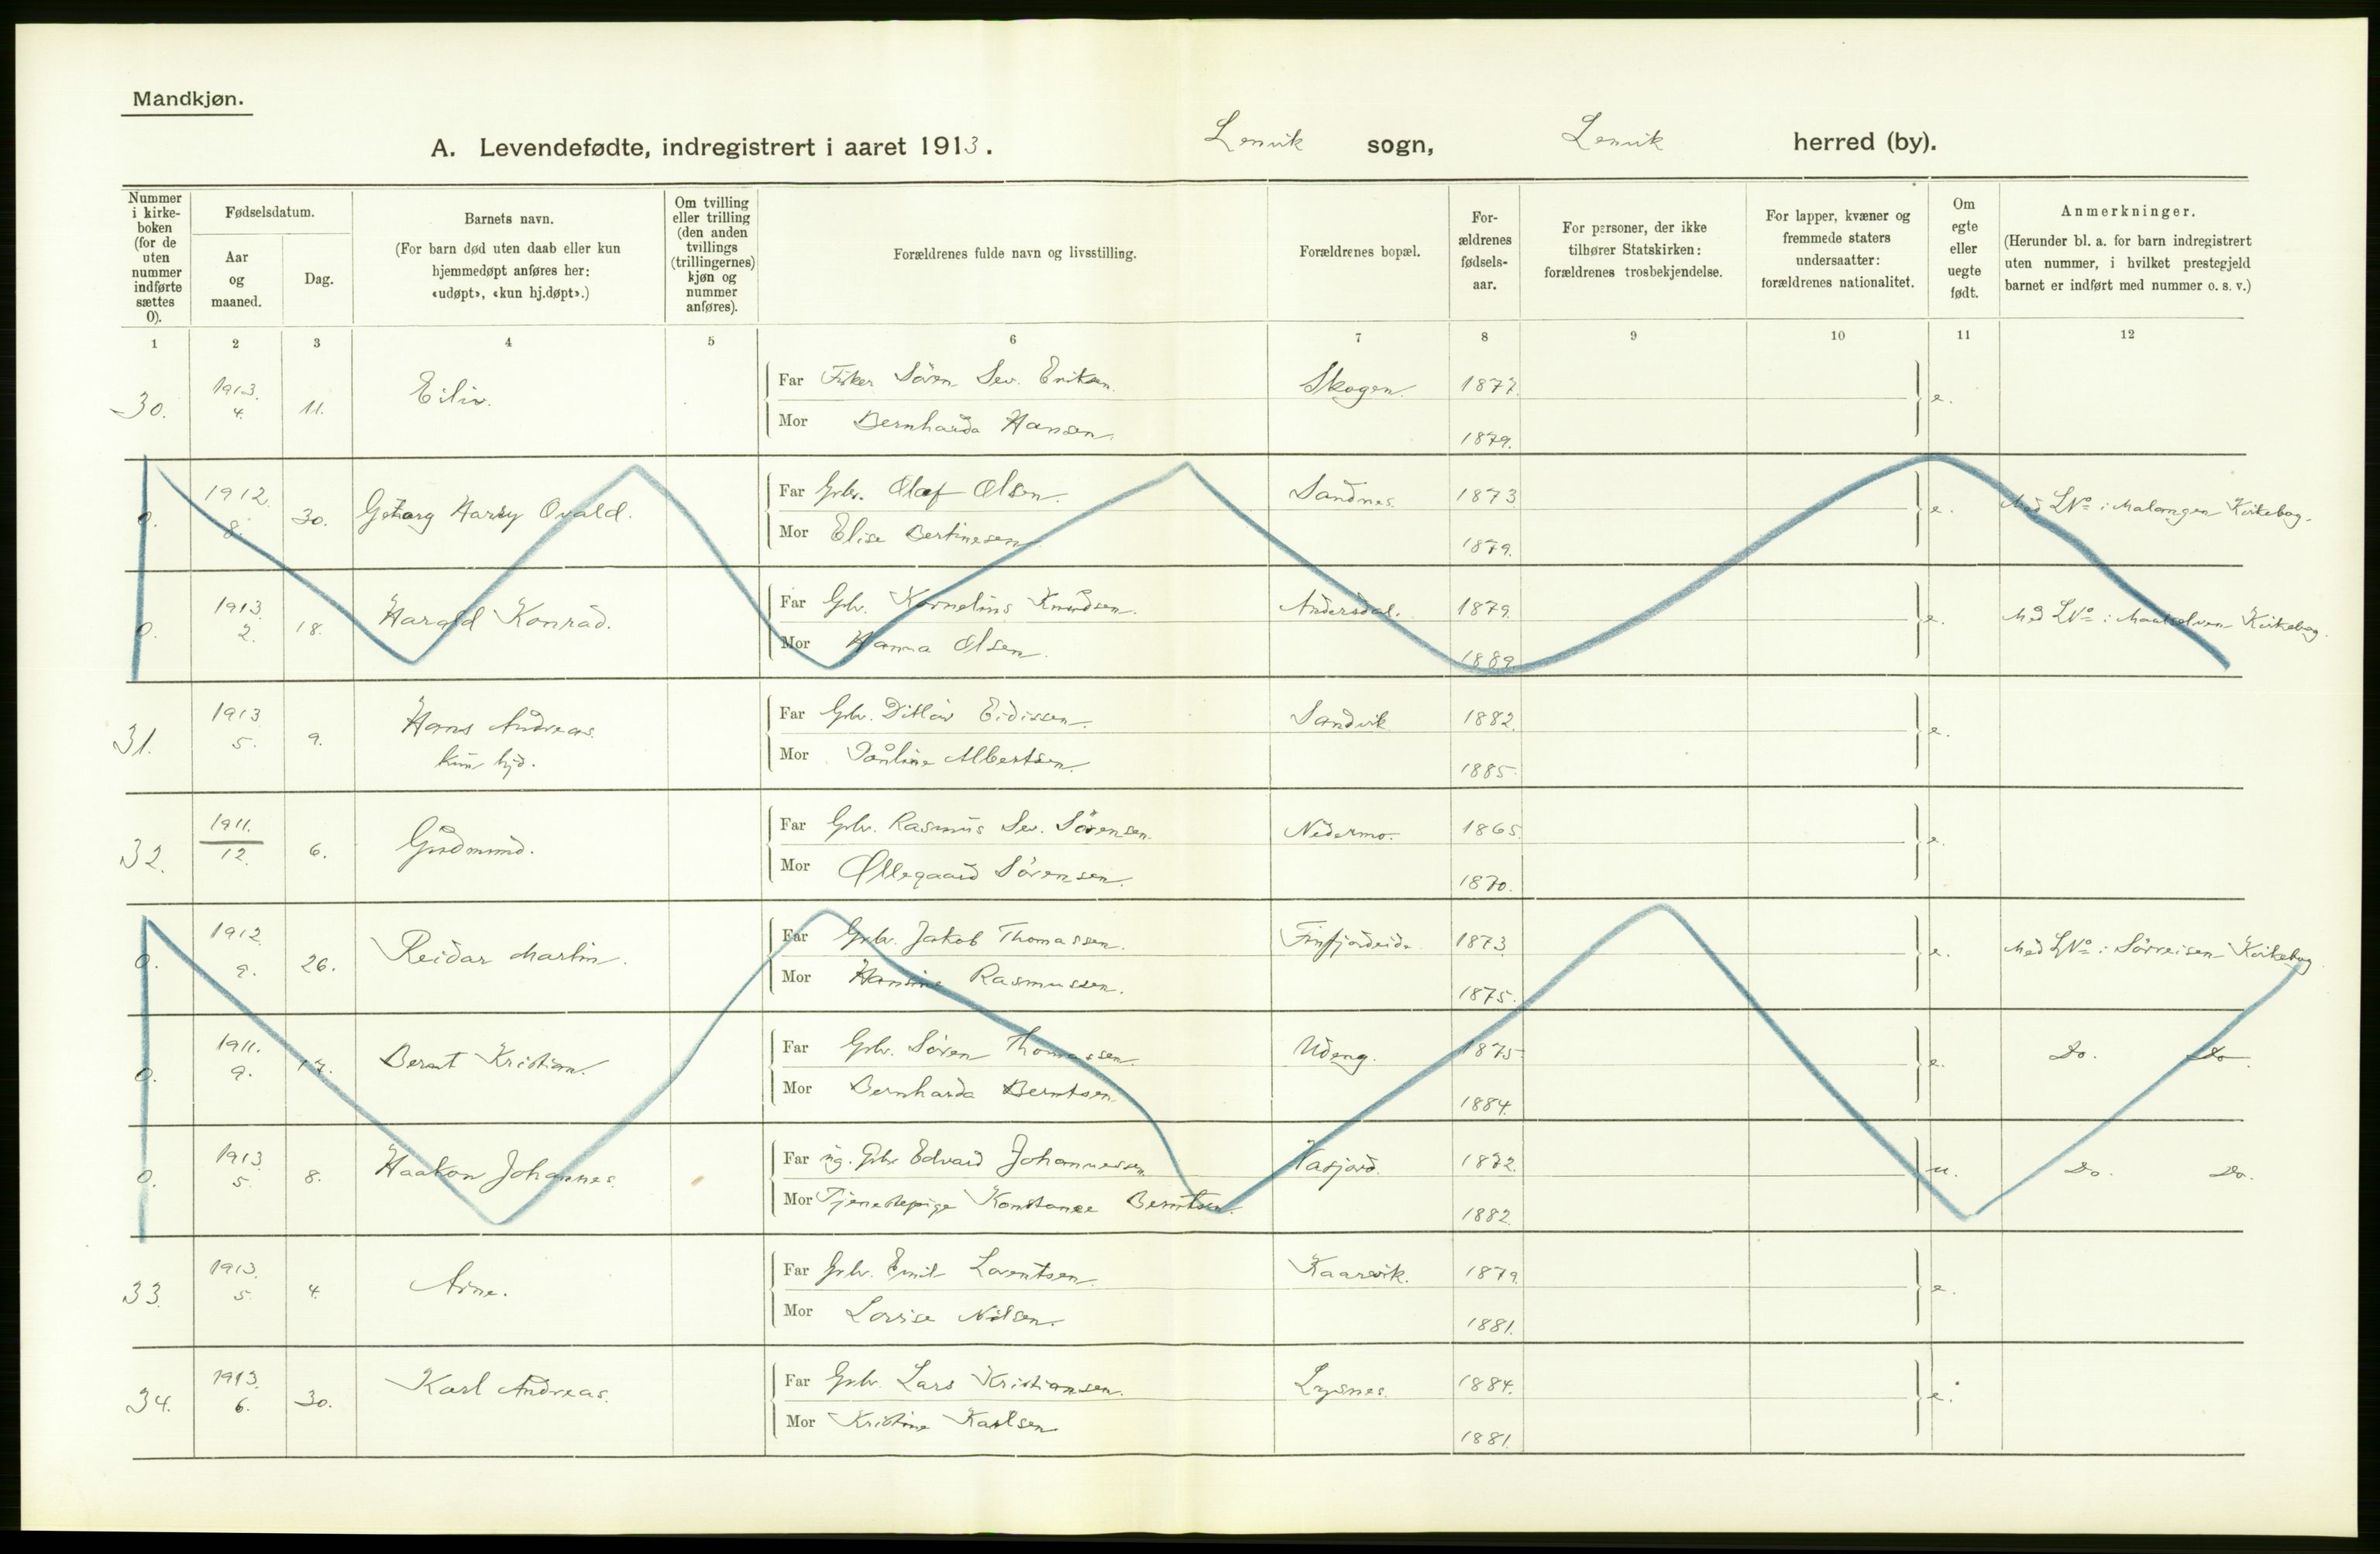 Mandkjøn.
A. Levendefødte, indregistrert i aaret 1913. Lenvik sogn, Lenvik herred (by).
Nummer i kirke-boken (for de uten nummer indførte sættes 0).
Fødselsdatum.
Aar og maaned.
Dag.
Barnets navn.
(For barn død uten daab eller kun hjemmedøpt anføres her: «udøpt», «kun hj.døpt».)
Om tvilling eller trilling (den anden tvillings (trillingernes) kjøn og nummer anføres).
Forældrenes fulde navn og livsstilling.
Forældrenes bopæl.
For-ældrenes fødsels-aar.
For personer, der ikke tilhører Statskirken: forældrenes trosbekjendelse.
For lapper, kvæner og fremmede staters undersaatter: forældrenes nationalitet.
Om egte eller uegte født.
Anmerkninger.
(Herunder bl. a. for barn indregistrert uten nummer, i hvilket prestegjeld barnet er indført med nummer o. s. v.)
1 2 3 4 5 6 7 8 9 10 11 12
30. 1913. 4. 11. Eiliv. Far Fisker Sören Sev. Eriksen. Skogen. 1877. e.
Mor Bernharda Hansen. 1879.
0. 1912. 8. 30. Georg Harry Ovald. Far Grbr. Olaf Olsen. Sandnes. 1873 e. Med LNo i Malangen Kirkebog.
Mor Elise Bertinesen. 1879.
0. 1913. 2. 18. Harald Konrad. Far Gbr. Kornelius Knudsen. Andersdal. 1879. e. Med LNo i Maalselven Kirkebog.
Mor Hanna Olsen. 1889.
31. 1913 5. 9. Hans Andreas. Far Gbr. Ditlöv Eidissen. Sandvik 1882. e.
kun hjd. Mor Pauline Albertsen. 1885.
32. 1911. 12. 6. Gudmund. Far Gbr. Rasmus Sev. Sörensen. Nedermo. 1865. e.
Mor Ollegaard Sörensen. 1870.
0. 1912. 9. 26. Reidar Martin. Far Grbr. Jakob Thomassen. Finfjordeide 1873. e. Med LNo i Sörreisen Kirkebog
Mor Hansine Rasmussen. 1875.
0. 1911. 9. 17. Bernt Kristian. Far Grbr. Sören Thomassen. Udeng. 1875 e. Do. Do.
Mor Bernharda Berntsen. 1884.
0. 1913. 5. 8. Haakon Johannes. Far ug. Gbr Edvard Johannessen. 1872. u. Do. Do.
Mor Tjenestepige Konstanse Berntsen. 1882.
33. 1913. 5. 4. Arne. Far Grbr. Emil Lorentsen. Kaarvik. 1879. e.
Mor Lovise Nilsen. 1881.
34. 1913. 6. 30. Karl Andreas. Far Grbr. Lars Kristiansen. Lysnes. 1884. e.
Mor Kristine Karlsen 1881.